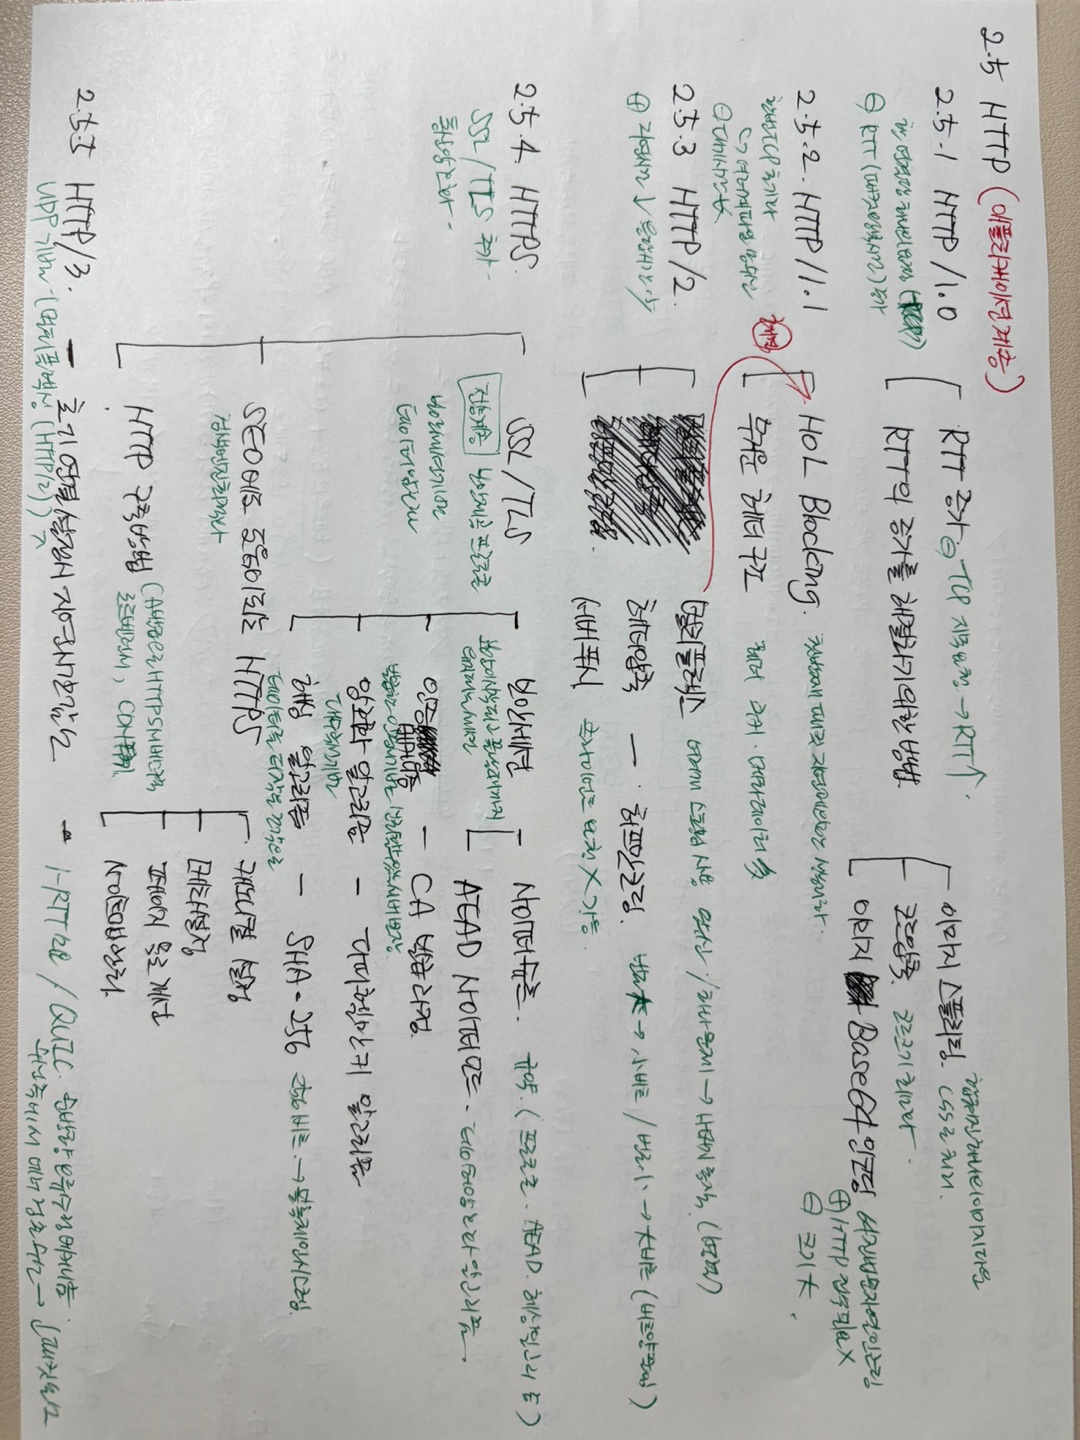 2.5 HTTP (애플리케이션 계층)
2.5.1 HTTP/1.0
한 연결당 하나의 요청
⊖ RTT (패킷왕복시간) 증가
RTT 증가 ⊖ TCP 지속요청 → RTT↑
RTT의 증가를 해결하기위한 방법
이미지 스플리팅. 합쳐진 하나의 이미지 다운
CSS로 처리.
코드압축. 코드크기 최소화
이미지 Base64 인코딩 64진법문자열인코딩
⊕ HTTP 접속 필요 X
⊖ 크기 大.
2.5.2. HTTP/1.1
한번 TCP 초기화
↳ 여러개 파일 송수신
⊖ 대기시간 大
해결
HOL Blocking. 첫번째 패킷 지연되면 성능저하.
무거운 헤더 구조 헤더 쿠키. 메타데이터 多
2.5.3 HTTP/2.
⊕ 지연시간 ↓ 응답시간 少
멀티플렉스 여러개 스트림 사용 송수신 / 하나 문제 → 나머지 동작. (병렬)
헤더압축 — 허프만코딩. 빈도 大 → 小비트 / 빈도 小 → 大비트 (비트양 줄임)
서버푸시 클라이언트 요청 X 가능.
2.5.4 HTTPS.
SSL/TLS 추가.
통신암호화.
SSL/TLS
전송계층 보안제공 프로토콜
보안세션기반
데이터 암호화
보안세션
보안이시작되고 끝날때까지
유지되는 세션
사이퍼 슈트. 규약. (프로토콜. AEAD. 해싱알고리즘)
AEAD 사이퍼모드. 데이터암호화 알고리즘.
인증 메커니즘 — CA 발급과정.
발급한 인증서기반 신뢰할수있는서버 보장.
암호화 알고리즘 — 디피헬만 키 알고리즘
대수곡선기반
해싱 알고리즘 — SHA-256 256비트. → 블록체인시스템.
데이터를 더작은 조각으로
SEO에도 도움이되는 HTTPS
검색엔진최적화
캐노니컬 설정
메타설정
페이지 속도 개선
사이트맵관리
HTTP 구축방법 CA발급으로 HTTPS서버구축
로드밸런서, CDN
2.5.5 HTTP/3. — 초기 연결 설정시 지연시간감소 — 1-RTT 소요 / QUIC. 순방향 오류수정 메커니즘
UDP 기반 (멀티플렉싱 (HTTP/2))
수신측에서 에러 검출 수정 → 패킷 손실